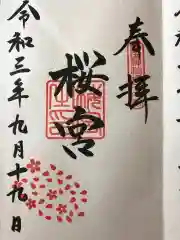 奉拝
桜宮
令和三年九月十九日